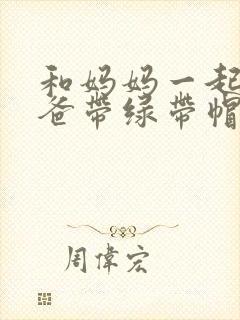 和妈妈一起
爸带绿带帽
周偉宏